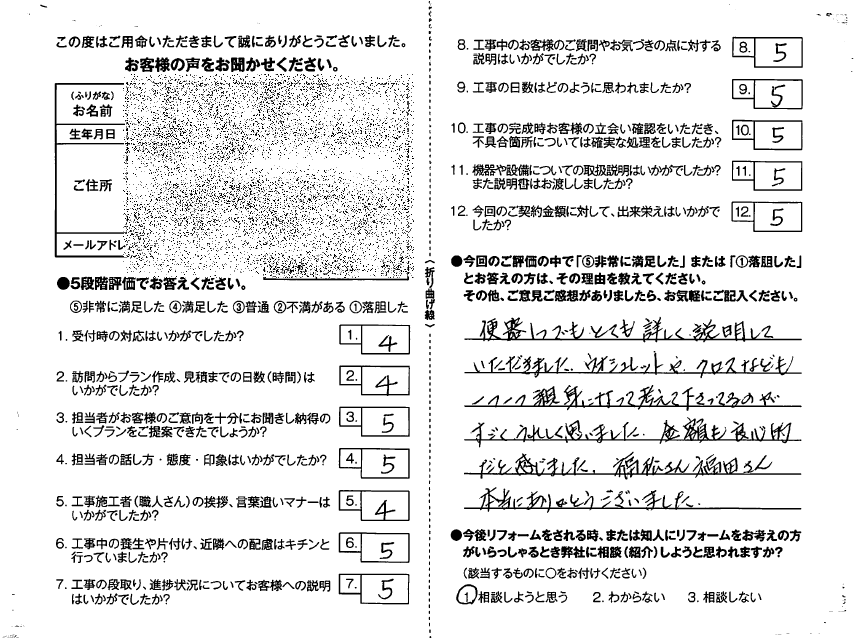 この度はご用命いただきまして誠にありがとうございました。
お客様の声をお聞かせください。
(ふりがな)
お名前
生年月日
ご住所
メールアドレ
●5段階評価でお答えください。
⑤非常に満足した ④満足した ③普通 ②不満がある ①落胆した
1. 受付時の対応はいかがでしたか?
1. 4
2. 訪問からプラン作成、見積までの日数(時間)は
いかがでしたか?
2. 4
3. 担当者がお客様のご意向を十分にお聞きし納得の
いくプランをご提案できたでしょうか?
3. 5
4. 担当者の話し方・態度・印象はいかがでしたか?
4. 5
5. 工事施工者(職人さん)の挨拶、言葉遣いマナーは
いかがでしたか?
5. 4
6. 工事中の養生や片付け、近隣への配慮はキチンと
行っていましたか?
6. 5
7. 工事の段取り、進捗状況についてお客様への説明
はいかがでしたか?
7. 5
〈折り曲げ線〉
8. 工事中のお客様のご質問やお気づきの点に対する
説明はいかがでしたか?
8. 5
9. 工事の日数はどのように思われましたか?
9. 5
10. 工事の完成時お客様の立会い確認をいただき、
不具合箇所については確実な処理をしましたか?
10. 5
11. 機器や設備についての取扱説明はいかがでしたか?
また説明書はお渡ししましたか?
11. 5
12. 今回のご契約金額に対して、出来栄えはいかがで
したか?
12. 5
●今回のご評価の中で「⑤非常に満足した」または「①落胆した」
とお答えの方は、その理由を教えてください。
その他、ご意見ご感想がありましたら、お気軽にご記入ください。
便器1つでもとても詳しく説明して
いただきました。ウオシュレットや、クロスなども
一つ一つ親身になって考えて下さってるのが
すごくうれしく思いました。金額も良心的
だと感じました。福松さん福田さん
本当にありがとうございました。
●今後リフォームをされる時、または知人にリフォームをお考えの方
がいらっしゃるとき弊社に相談(紹介)しようと思われますか?
(該当するものに○をお付けください)
1. 相談しようと思う 2. わからない 3. 相談しない